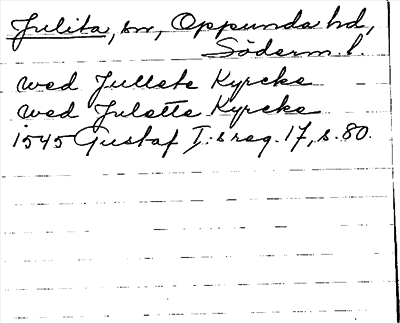 Julita, sn, Oppunda hd,
Söderm. l.
wed Jullete Kyrcke
wed Juletta Kyrcke
1545 Gustaf I:s reg. 17, s. 80.